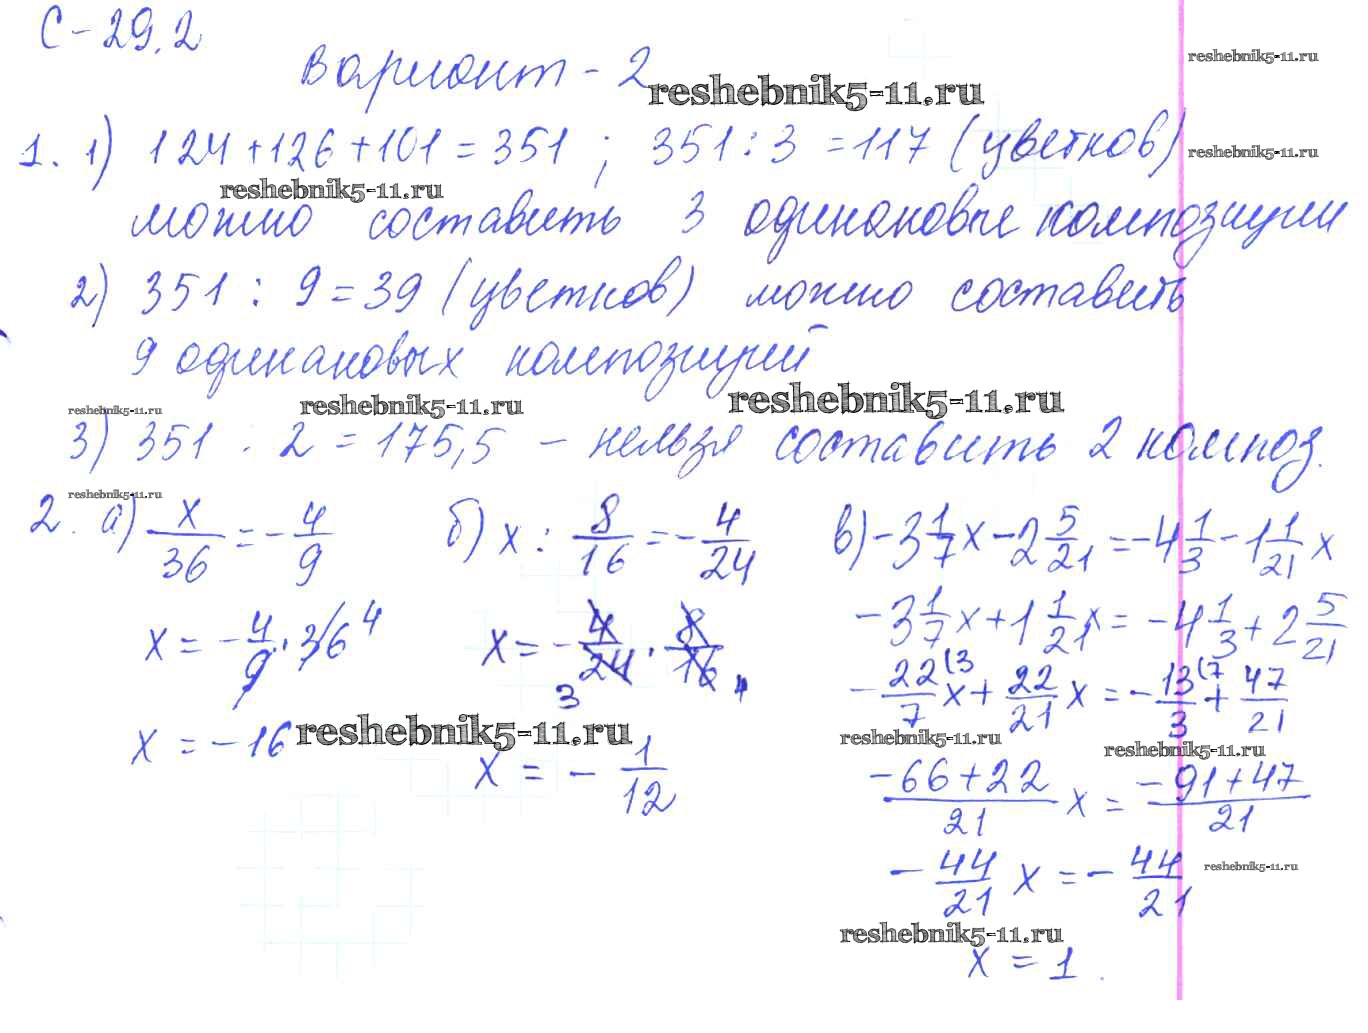 С-29.2
Вариант - 2
reshebnik5-11.ru
reshebnik5-11.ru
1. 1) 124+126+101=351 ; 351:3 =117 (цветков)
reshebnik5-11.ru
reshebnik5-11.ru
можно составить 3 одинаковые композиции
2) 351 : 9=39 (цветков) можно составить
9 одинаковых композиций
reshebnik5-11.ru
reshebnik5-11.ru
reshebnik5-11.ru
3) 351 : 2 = 175,5 – нельзя составить 2 композ.
reshebnik5-11.ru
2. а) x/36 = -4/9
x = -4/9 · 36 4
x = -16
reshebnik5-11.ru
б) x : 8/16 = -4/24
x = -4/24 · 8/16
3 4
x = - 1/12
в) -3 1/7 x - 2 5/21 = -4 1/3 - 1 1/21 x
-3 1/7 x + 1 1/21 x = -4 1/3 + 2 5/21
-22/7 (3 x + 22/21 x = -13/3 (7 + 47/21
reshebnik5-11.ru
reshebnik5-11.ru
-66+22/21 x = -91+47/21
-44/21 x = -44/21
reshebnik5-11.ru
reshebnik5-11.ru
x = 1.